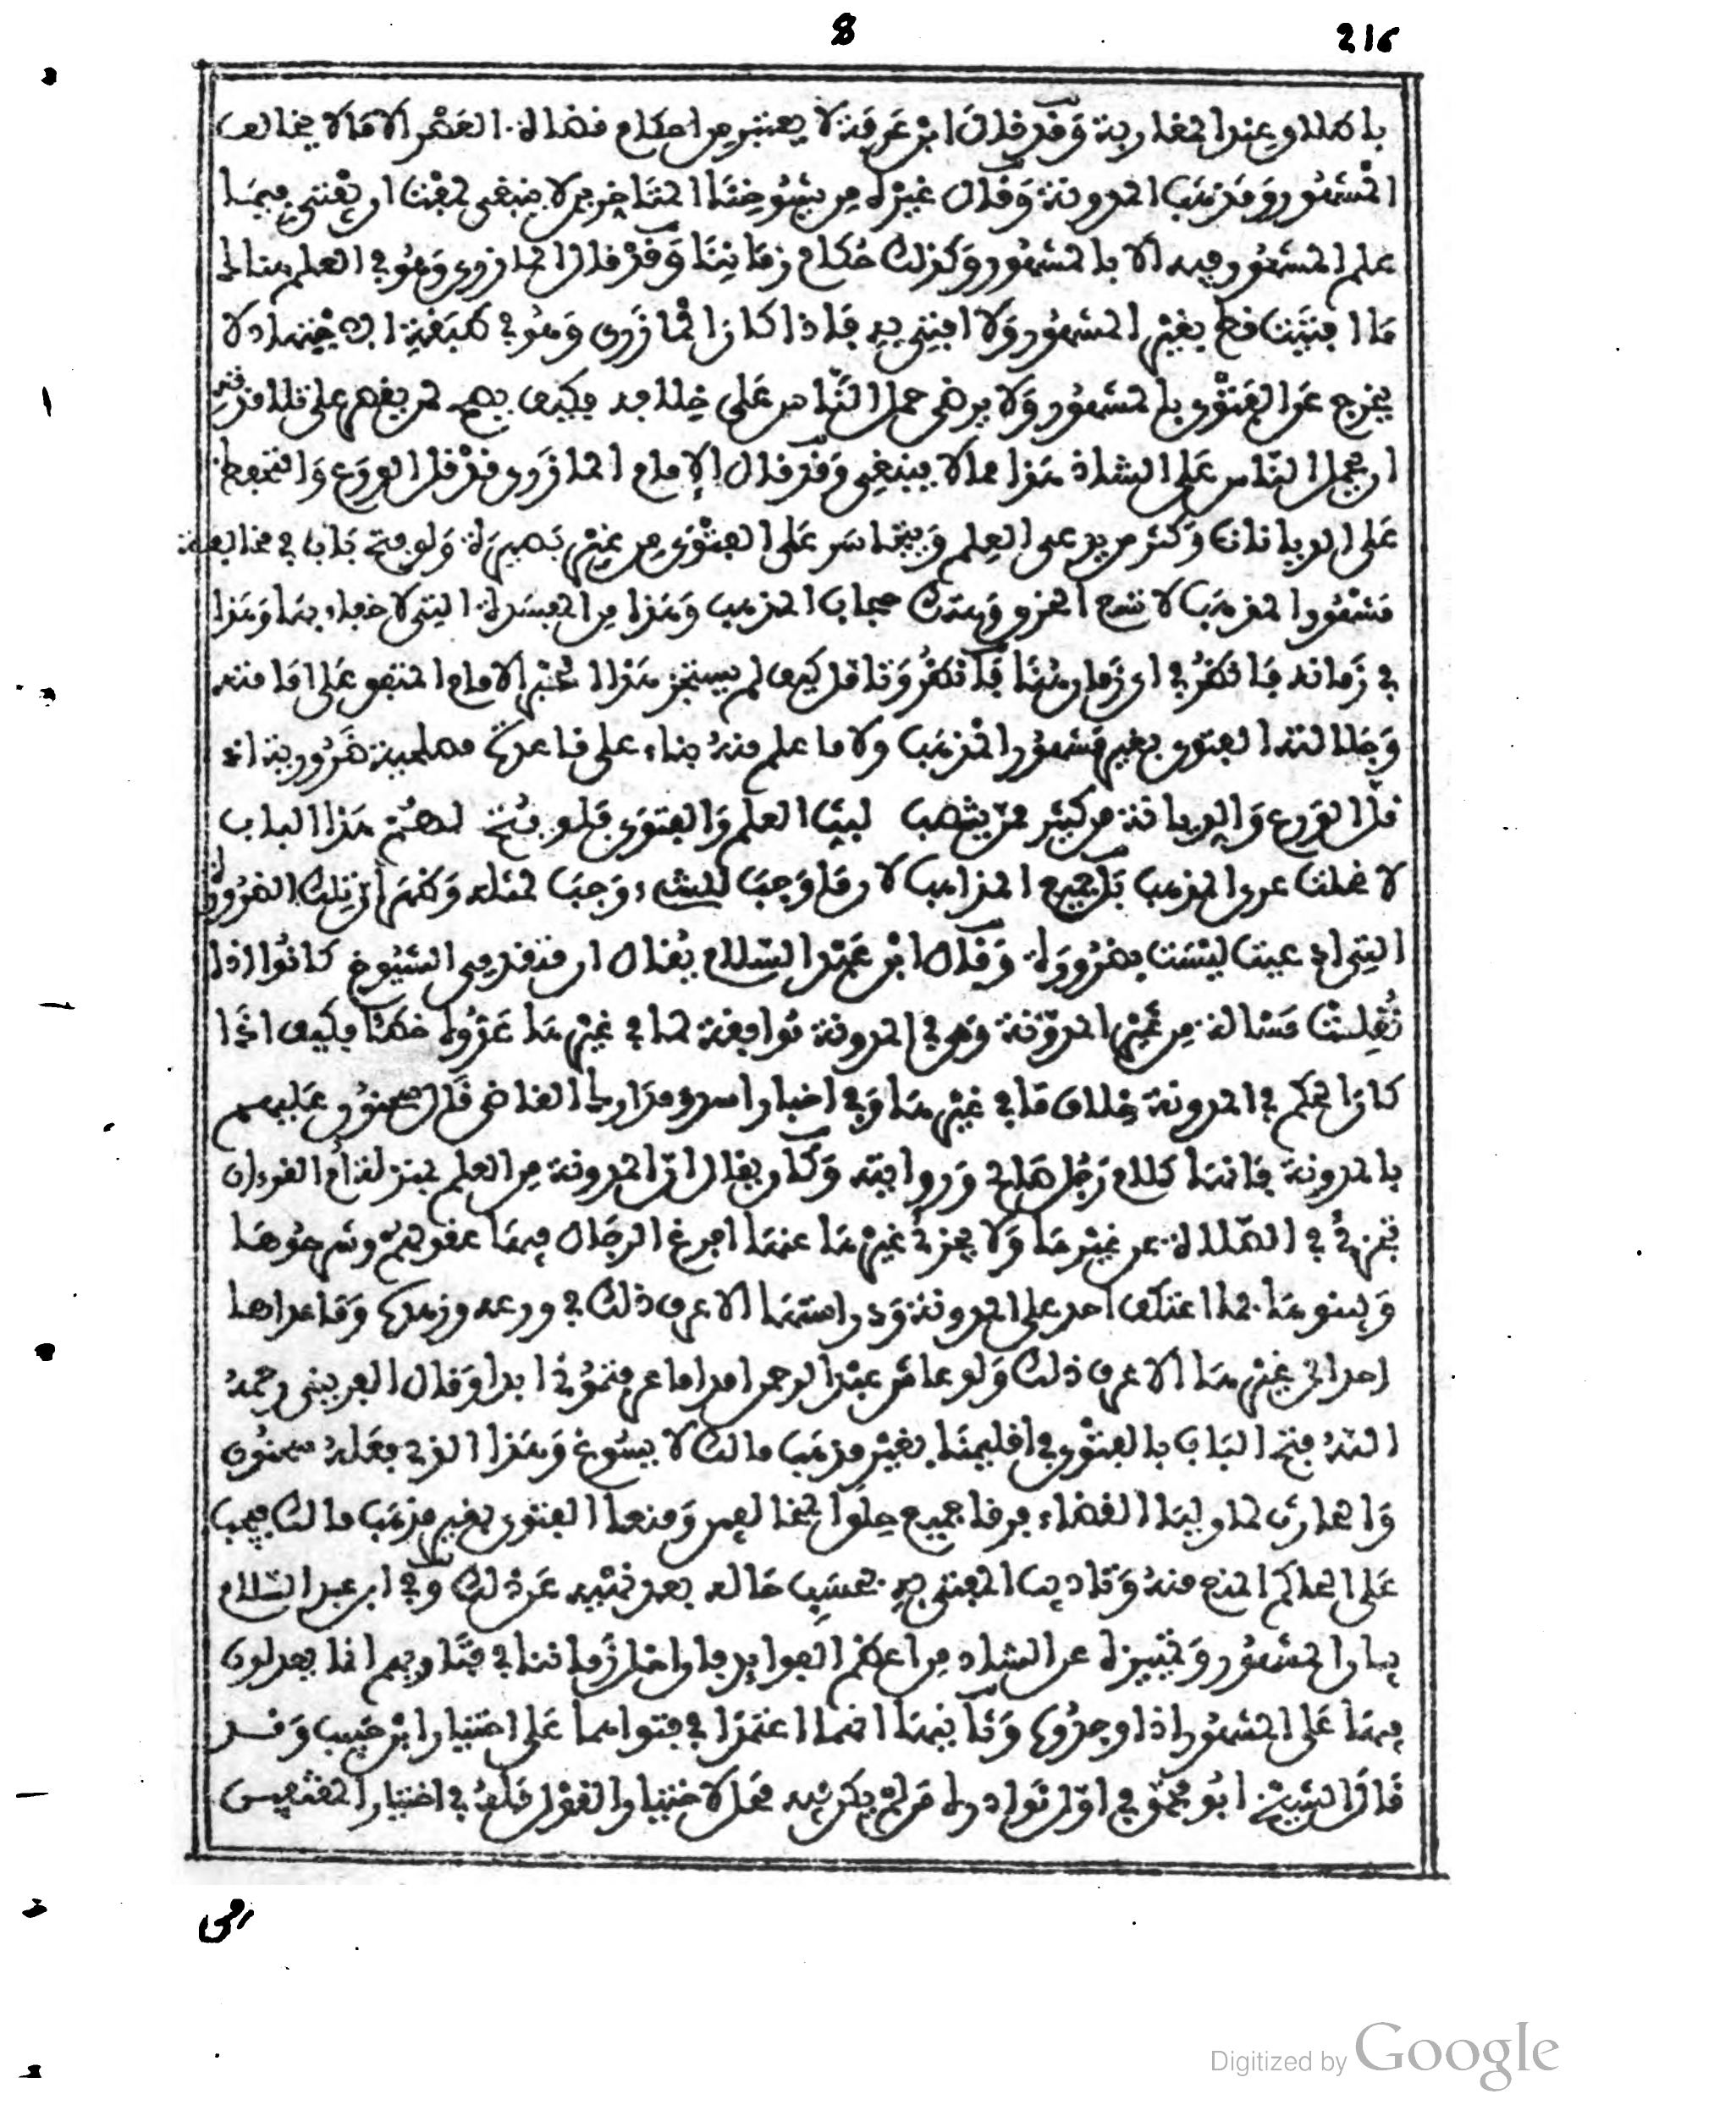 8 216
باطلاق عند المغاربة وقد قال ابن عرفة لا يعتبر من احكام قضاة العصر الا ما لا يخالف
المشهور ومذهب المدونة وقال غيره من شيوخنا المتاخرين لا ينبغي لمفت ان يفتي فيما
علم المشهور فيه الا بالمشهور وكذلك حكام زماننا وقد قال المازري وهو في العلم هنالك
ما افتيت قط بغير المشهور ولا افتي به فاذا كان المازري وهو في طبقة الاجتهاد لا
يخرج عن الفتوى بالمشهور ولا يرضى حمل الناس على خلافه فكيف بمن يقصر على تلامذته
ان يحمل الناس على الشاذ هذا مما لا ينبغي وقد قال الامام المازري قد قل الورع والتحفظ
على الديانات وكثر من يدعي العلم ويتجاسر على الفتوى من غير بصيرة ولو فتح باب في مخالفة
مشهور المذهب لاتسع الخرق وهتك حجاب المذهب وهذا من المفسدة التي لا خفاء بها وهذا
في زمانه فانظر في اي زمان هنا فانظر وتامل كيف لم يستجز هذا الحبر الامام المتفق على امامته
وجلالته الفتوى بغير مشهور المذهب ولا ما علم منه بناء على قاعدة مصلحية ضرورية اذ
قل الورع والديانة من كثير ممن ينتصب لبث العلم والفتوى فلو فتح لهم هذا الباب
لانحلت عرى المذهب بل جميع المذاهب لان ما وجب للشيء وجب لمثله وظهر ان تلك الضرورة
التي ادعيت ليست بضرورة وقال ابن عبد السلام يقال ان من تقدم من الشيوخ كانوا اذا
نقلت مسالة من غير المدونة وهي في المدونة توافقه لما في غيرها عدوه خطئا فكيف اذا
كان الحكم في المدونة خلاف ما في غيرها وفي اخبار اسد بن الفرات القاضي قال سحنون عليكم
بالمدونة فانها كلام رجل صالح وروايته وكان يقال ان المدونة من العلم بمنزلة ام القرءان
تجزئ في الصلاة عن غيرها ولا يجزئ غيرها عنها افرغ الرجال فيها عقولهم وشرحوها
وبينوها فما اعتكف احد على المدونة ودراستها الا عرف ذلك في ورعه وزهده وما عداها
احد الى غيرها الا عرف ذلك ولو عاش عبد الرحمن ابدا ما رايتموني ابدا وقال الغربيني رحمه
الله فتح الباب بالفتوى في اقليمنا بغير مذهب مالك لا يسوغ وهذا الذي فعله سحنون
والحارث لما وليا القضاء فرقا جميع حلق المخالفين ومنعا الفتوى بغير مذهب مالك فيجب
على الحاكم المنع منه وتاديب المفتي به بحسب حاله بعد نهيه عن ذلك وفي ابن عبد السلام
بيان المشهور وتمييزه عن الشاذ من اعظم الفوايد فان اهل زماننا في فتاويهم انما يعدلون
فيها على المشهور اذا وجدوه وثانيهما انهما اعتمدا في فتواهما على اختيار ابن حبيب وقد
قال الشيخ ابو محمد في اول نوادره من لم يكن فيه محمل الاختيار للقول فله في اختيار المتعقبين